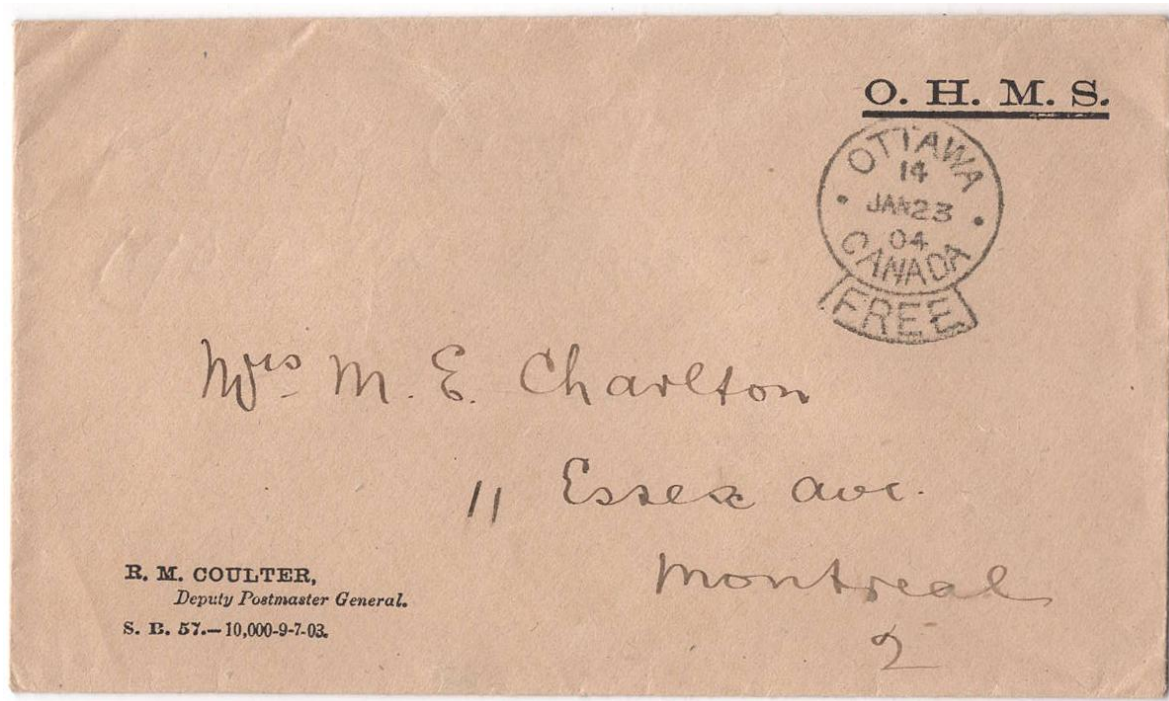 O. H. M. S.
OTTAWA
14
JAN 23
04
CANADA
FREE
Mrs M. E. Charlton
11 Essex Ave.
Montreal
2
R. M. COULTER,
Deputy Postmaster General.
S. B. 57.—10,000-9-7-03.